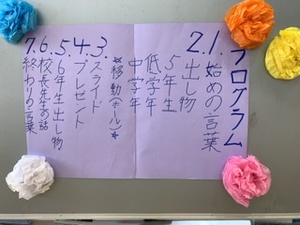 プログラム
1.始めの言葉
2.出し物
5年生
低学年
中学年
*移動(ホール)*
3.スライド
4.プレゼント
5.6年生出し物
6.校長先生の話
7.終わりの言葉